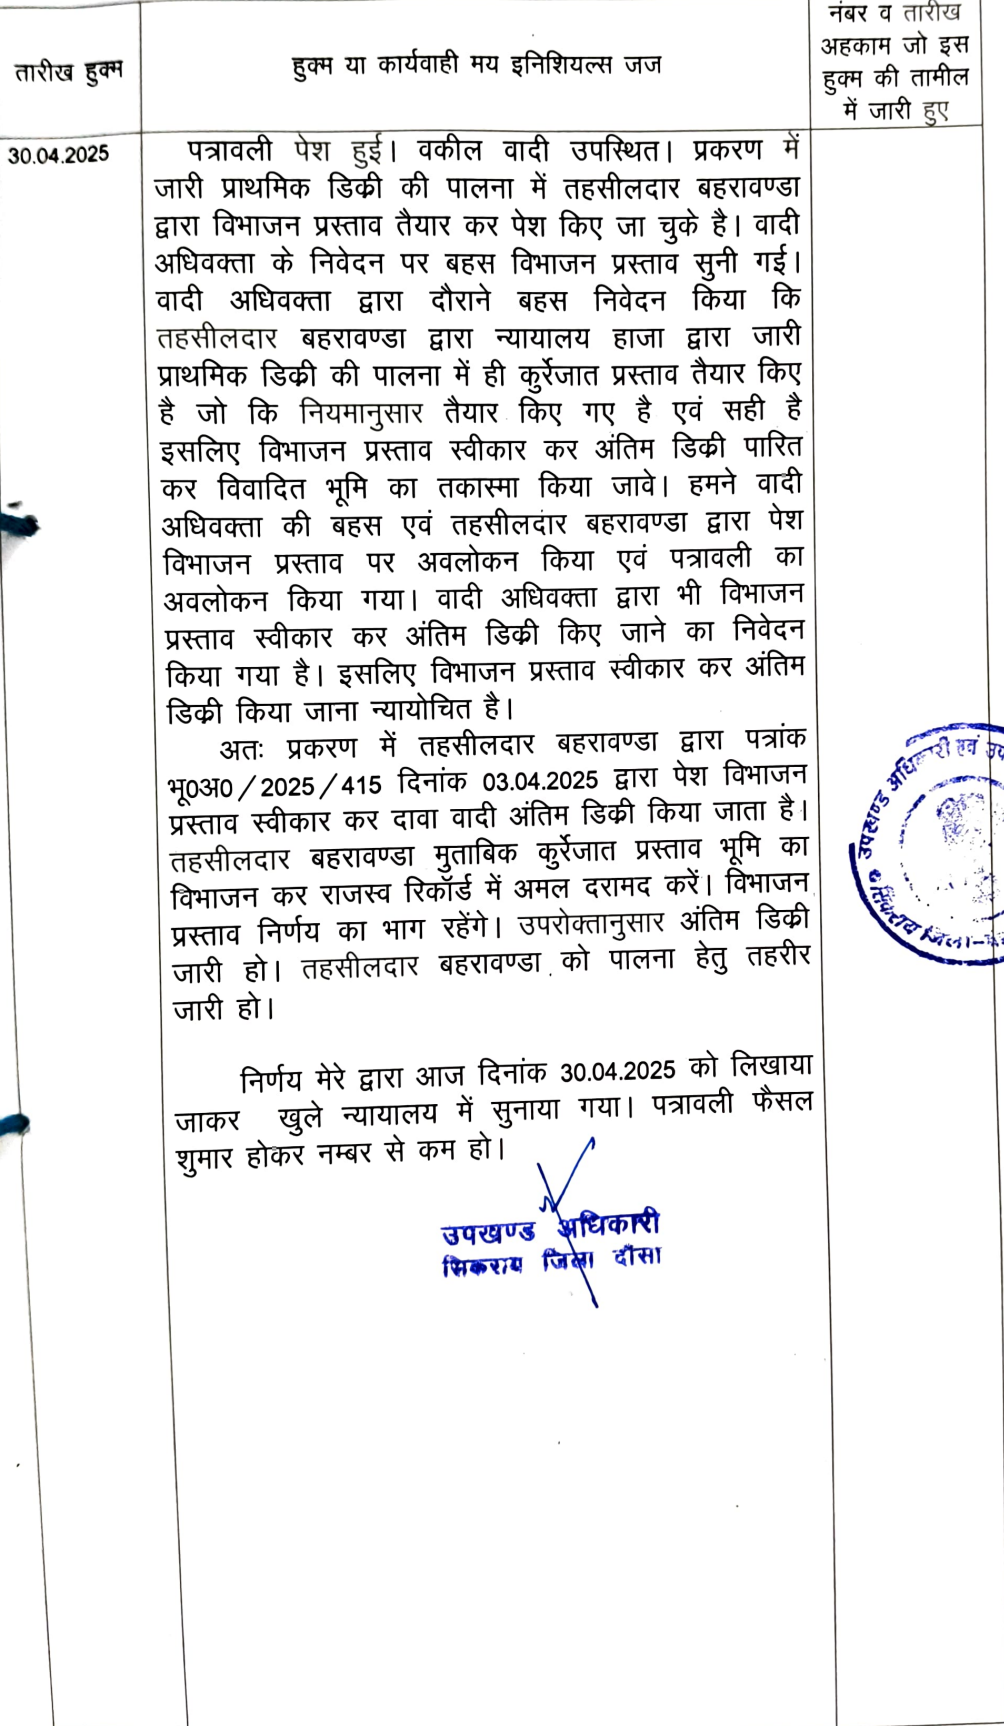 तारीख हुक्म
हुक्म या कार्यवाही मय इनिशियल्स जज
नंबर व तारीख
अहकाम जो इस
हुक्म की तामील
में जारी हुए
30.04.2025
पत्रावली पेश हुई। वकील वादी उपस्थित। प्रकरण में
जारी प्राथमिक डिक्री की पालना में तहसीलदार बहरावण्डा
द्वारा विभाजन प्रस्ताव तैयार कर पेश किए जा चुके है। वादी
अधिवक्ता के निवेदन पर बहस विभाजन प्रस्ताव सुनी गई।
वादी अधिवक्ता द्वारा दौराने बहस निवेदन किया कि
तहसीलदार बहरावण्डा द्वारा न्यायालय हाजा द्वारा जारी
प्राथमिक डिक्री की पालना में ही कुर्रेजात प्रस्ताव तैयार किए
है जो कि नियमानुसार तैयार किए गए है एवं सही है
इसलिए विभाजन प्रस्ताव स्वीकार कर अंतिम डिक्री पारित
कर विवादित भूमि का तकास्मा किया जावे। हमने वादी
अधिवक्ता की बहस एवं तहसीलदार बहरावण्डा द्वारा पेश
विभाजन प्रस्ताव पर अवलोकन किया एवं पत्रावली का
अवलोकन किया गया। वादी अधिवक्ता द्वारा भी विभाजन
प्रस्ताव स्वीकार कर अंतिम डिक्री किए जाने का निवेदन
किया गया है। इसलिए विभाजन प्रस्ताव स्वीकार कर अंतिम
डिक्री किया जाना न्यायोचित है।
अतः प्रकरण में तहसीलदार बहरावण्डा द्वारा पत्रांक
भू0अ0/2025/415 दिनांक 03.04.2025 द्वारा पेश विभाजन
प्रस्ताव स्वीकार कर दावा वादी अंतिम डिक्री किया जाता है।
तहसीलदार बहरावण्डा मुताबिक कुर्रेजात प्रस्ताव भूमि का
विभाजन कर राजस्व रिकॉर्ड में अमल दरामद करें। विभाजन
प्रस्ताव निर्णय का भाग रहेंगे। उपरोक्तानुसार अंतिम डिक्री
जारी हो। तहसीलदार बहरावण्डा को पालना हेतु तहरीर
जारी हो।
निर्णय मेरे द्वारा आज दिनांक 30.04.2025 को लिखाया
जाकर खुले न्यायालय में सुनाया गया। पत्रावली फैसल
शुमार होकर नम्बर से कम हो।
उपखण्ड अधिकारी
सिकराय जिला दौसा
उपखण्ड अधिकारी एवं
सिकराय जिला-